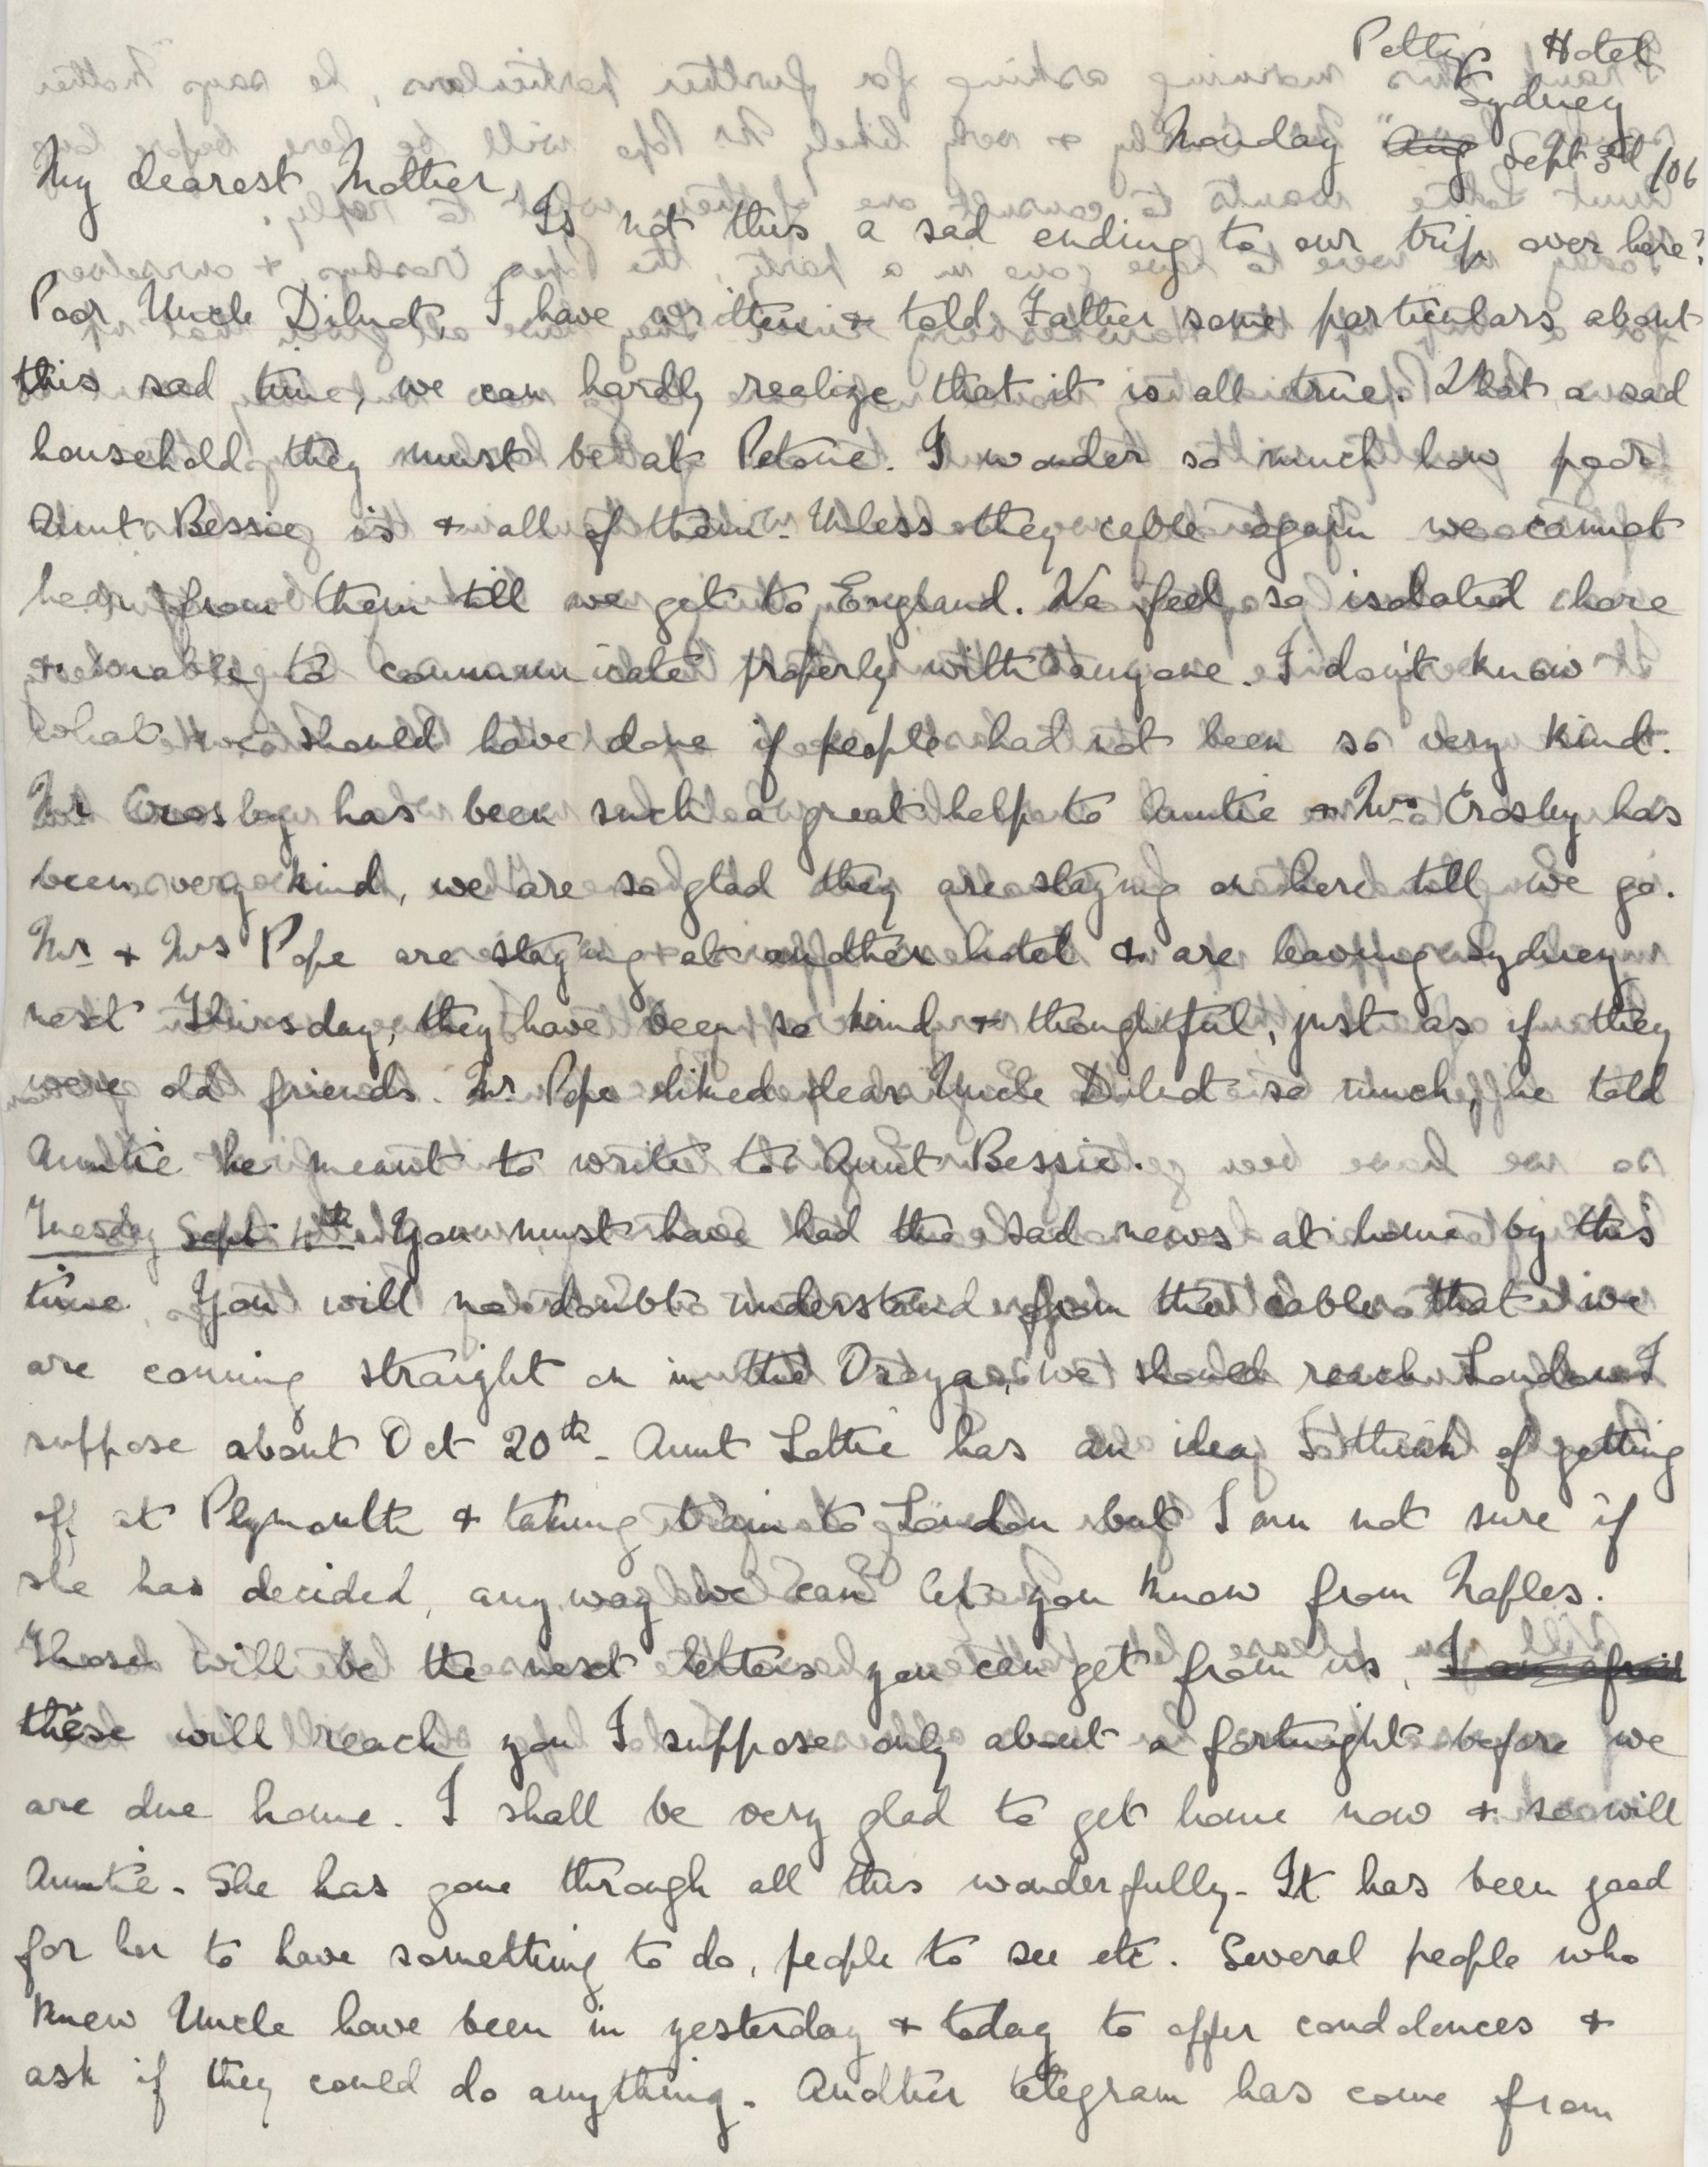 Pettys Hotel
Sydney
Monday Aug Sept 3rd /06
My dearest Mother,
Is not this a sad ending to our trip over here?
Poor Uncle Dilnot, I have written & told Father some particulars about
this sad time, we can hardly realize that it is all true. What a sad
household they must be at Petone. I wonder so much how poor
Aunt Bessie is & all of them. Unless they cable again we cannot
hear from them till we get to England. We feel so isolated here
& unable to communicate properly with anyone. I don't know
what we should have done if people had not been so very kind.
Mr Crosby has been such a great help to Auntie & Mrs Crosby has
been very kind, we are so glad they are staying on here till we go.
Mr & Mrs Pope are staying at another hotel & are leaving Sydney
next Thursday, they have been so kind & thoughtful, just as if they
were old friends. Mr Pope liked dear Uncle Dilnot so much, he told
Auntie he meant to write to Aunt Bessie.
Tuesday Sept 4th You must have had the sad news at home by this
time. You will no doubt understand from the cable that we
are coming straight on in the Oroya, we should reach London I
suppose about Oct 20th - Aunt Lottie has an idea I think of getting
off at Plymouth & taking train to London but I am not sure if
she has decided, anyway we can let you know from Naples.
Those will be the next letters you can get from us, I am afraid
these will reach you I suppose only about a fortnight before we
are due home. I shall be very glad to get home now & so will
Auntie - She has gone through all this wonderfully - It has been good
for her to have something to do, people to see etc. Several people who
knew Uncle have been in yesterday & today to offer condolences &
ask if they could do anything. Another telegram has come from